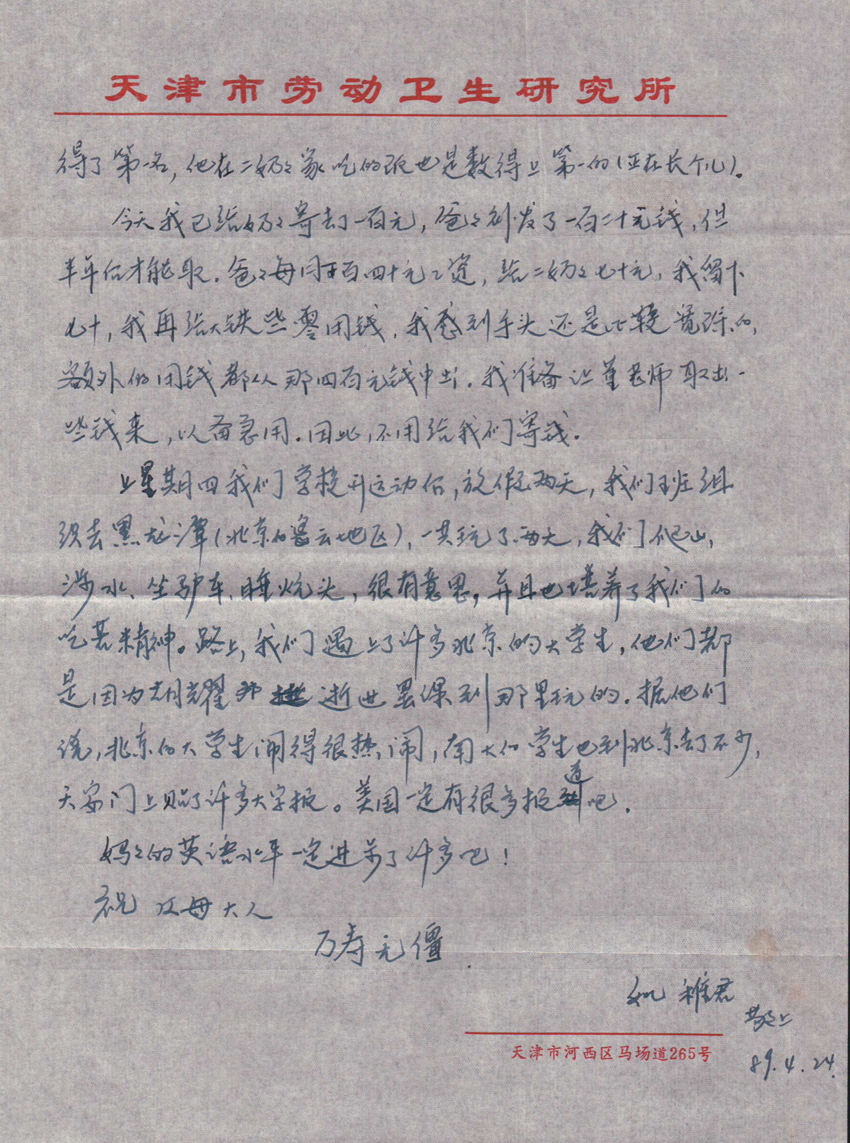 天津市劳动卫生研究所
得了第一名，他在二奶々家吃的饭也是数得上第一的（正在长个儿）。
今天我已给奶々寄去了一百元，爸々补发了一百二十元钱，但
半年后才能取。爸々每月百四十元工资，给二奶々七十元，我留下
七十，我再给大铁些零用钱，我感到手头还是比较宽踪的，
额外的用钱都从那四百元钱中出。我准备让董老师取出一
些钱来，以备急用。因此，不用给我们寄钱。
上星期四我们学校开运动会，放假两天，我们班组
织去黑龙潭（北京的密云地区），一共玩了两天，我们爬山，
涉水、坐驴车、睡炕头，很有意思，并且也培养了我们的
吃苦精神。路上，我们遇上了许多北京的大学生，他们都
是因为胡耀邦逝世罢课到那里玩的。据他们
说，北京的大学生闹得很热闹，南大的学生也到北京去了不少，
天安门上贴了许多大字报。美国一定有很多报道吧。
妈々的英语水平一定进步了许多吧！
祝 父母大人
万寿无僵
儿 稚君
敬上
89.4.24.
天津市河西区马场道265号